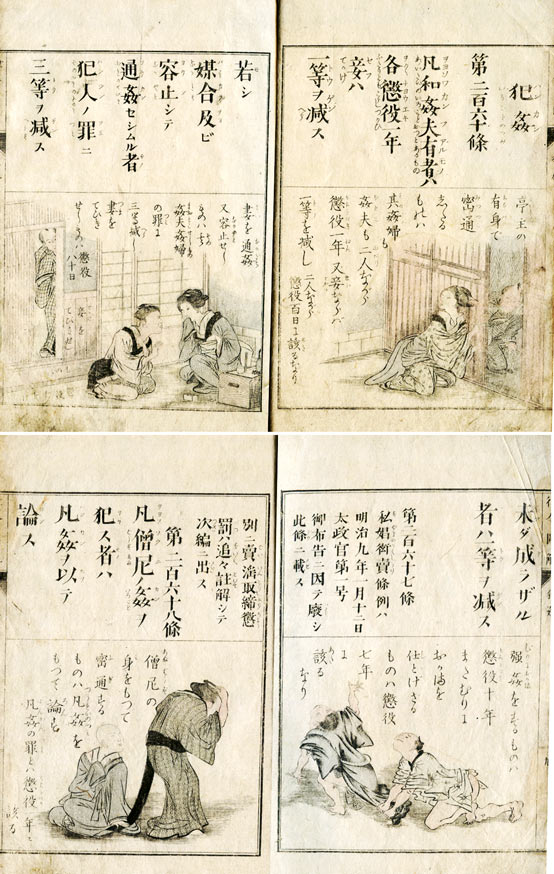 犯姦
第二百六十條
凡和姦夫有者ハ
各懲役一年
妾ハ
一等ヲ減ス
亭主の
有身て
密通
もれハ
其姦婦も
姦夫も二人ながら
懲役一年又妾ならバ
一等を減し二人ながら
懲役百日に該るなり
若シ
媒合及ビ
容止シテ
通姦セシムル者
犯人ノ罪ニ
三等ヲ减ス
妻を通姦
又容止せし
ものハ
姦夫姦婦
の罪に
三等減
妻を
懲役
八十日
未ダ成ラザル
者ハ一等ヲ减ス
第二百六十七條
私娼衒賣條例ハ
明治九年一月十二日
太政官第一号
御布告ニ因テ廢シ
此條ニ載ス
强姦をするものハ
懲役十年
仕とげざる
ものハ懲役
七年
に
該る
なり
別ニ賣淫取締懲
罰ハ追々註解シテ
次編ニ出ス
第二百六十八條
凡僧尼姦ヲ
犯ス者ハ
凡姦ヲ以テ
論ス
僧尼の
身をもつて
密通する
ものハ凡姦を
もつて論る
凡姦の罪とハ懲役一年に
該る